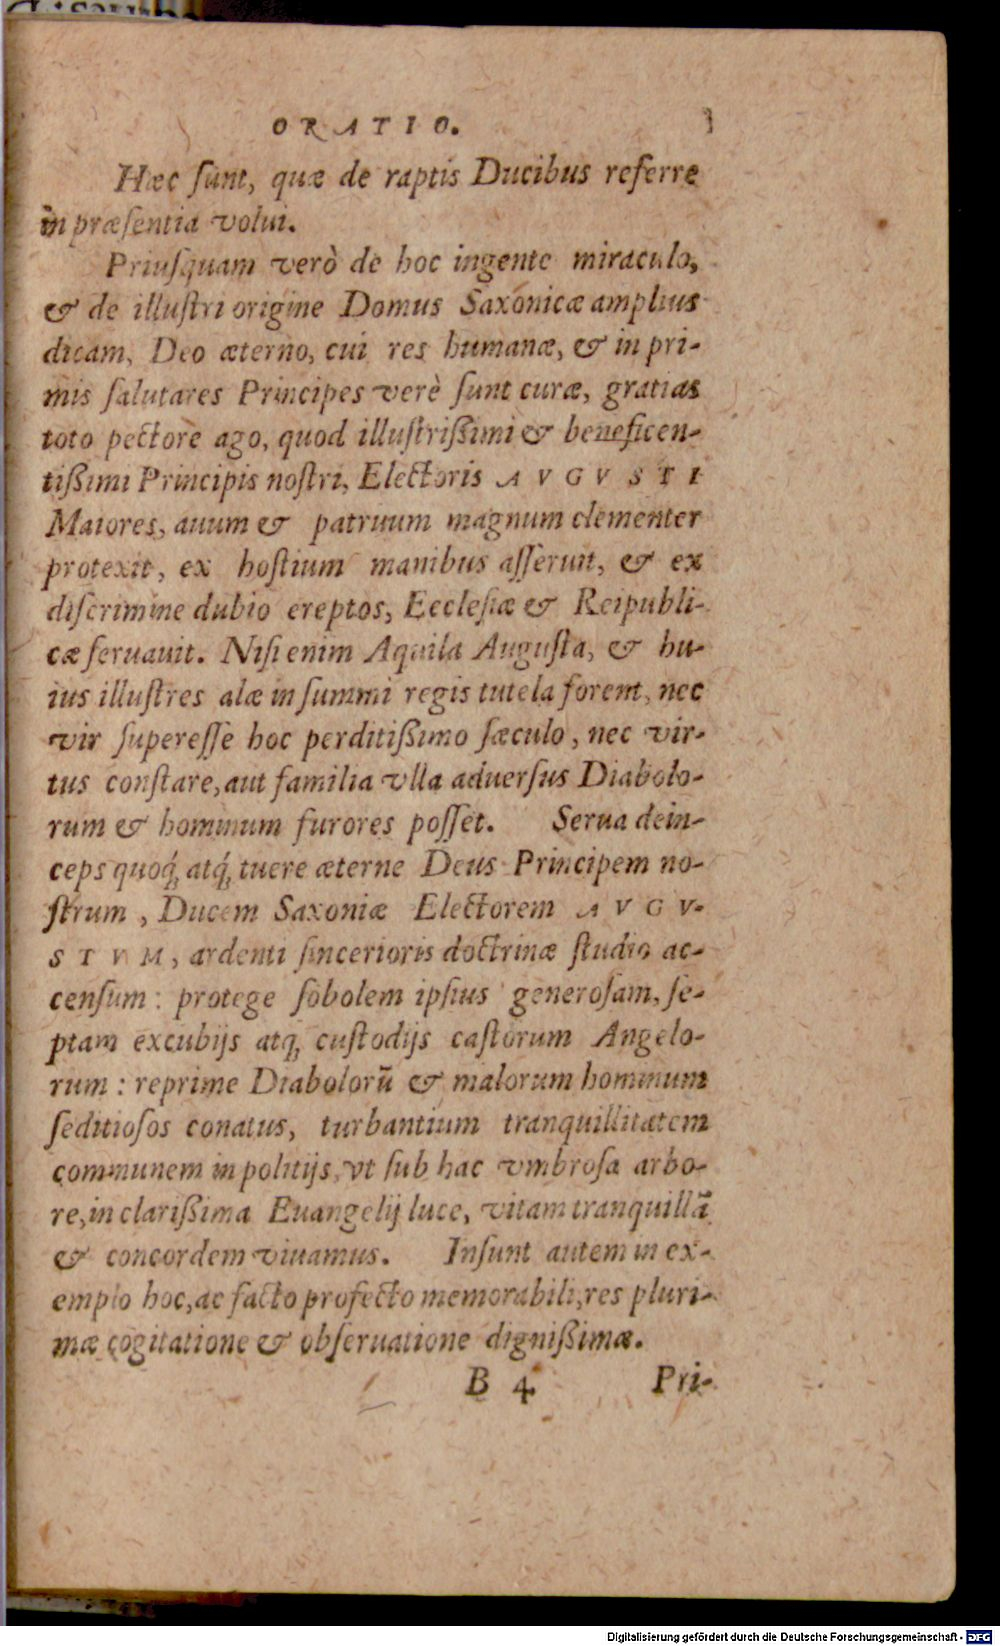 ORATIO.
Hæc ſunt, quæ de raptis Ducibus referre
in præſentia volui.
Priuſquam verò de hoc ingente miraculo,
& de illuſtri origine Domus Saxonicæ amplius
dicam, Deo æterno, cui res humanæ, & in pri-
mis ſalutares Principes verè ſunt curæ, gratias
toto pectore ago, quod illuſtrißimi & beneficen-
tißimi Principis noſtri, Electoris AVGVSTI
Maiores, auum & patruum magnum clementer
protexit, ex hoſtium manibus aſſeruit, & ex
diſcrimine dubio ereptos, Eccleſiæ & Reipubli-
cæ ſeruauit. Niſi enim Aquila Auguſta, & hu-
ius illuſtres alæ in ſummi regis tutela forent, nec
vir ſupereſſe hoc perditißimo ſæculo, nec vir-
tus conſtare, aut familia vlla aduerſus Diabolo-
rum & hominum furores poſſet. Serua dein-
ceps quoq́; atq́; tuere æterne Deus Principem no-
ſtrum, Ducem Saxoniæ Electorem AVGV-
STVM, ardenti ſincerioris doctrinæ ſtudio ac-
cenſum: protege ſobolem ipſius generoſam, ſe-
ptam excubijs atq; cuſtodijs caſtorum Angelo-
rum: reprime Diabolorū & malorum hominum
ſeditioſos conatus, turbantium tranquillitatem
communem in politijs, vt ſub hac vmbroſa arbo-
re, in clarißima Euangelij luce, vitam tranquillā
& concordem viuamus. Inſunt autem in ex-
emplo hoc, ac facto profecto memorabili, res pluri-
mæ cogitatione & obſeruatione dignißimæ.
B 4 Pri-
Digitalisierung gefördert durch die Deutsche Forschungsgemeinschaft - DFG